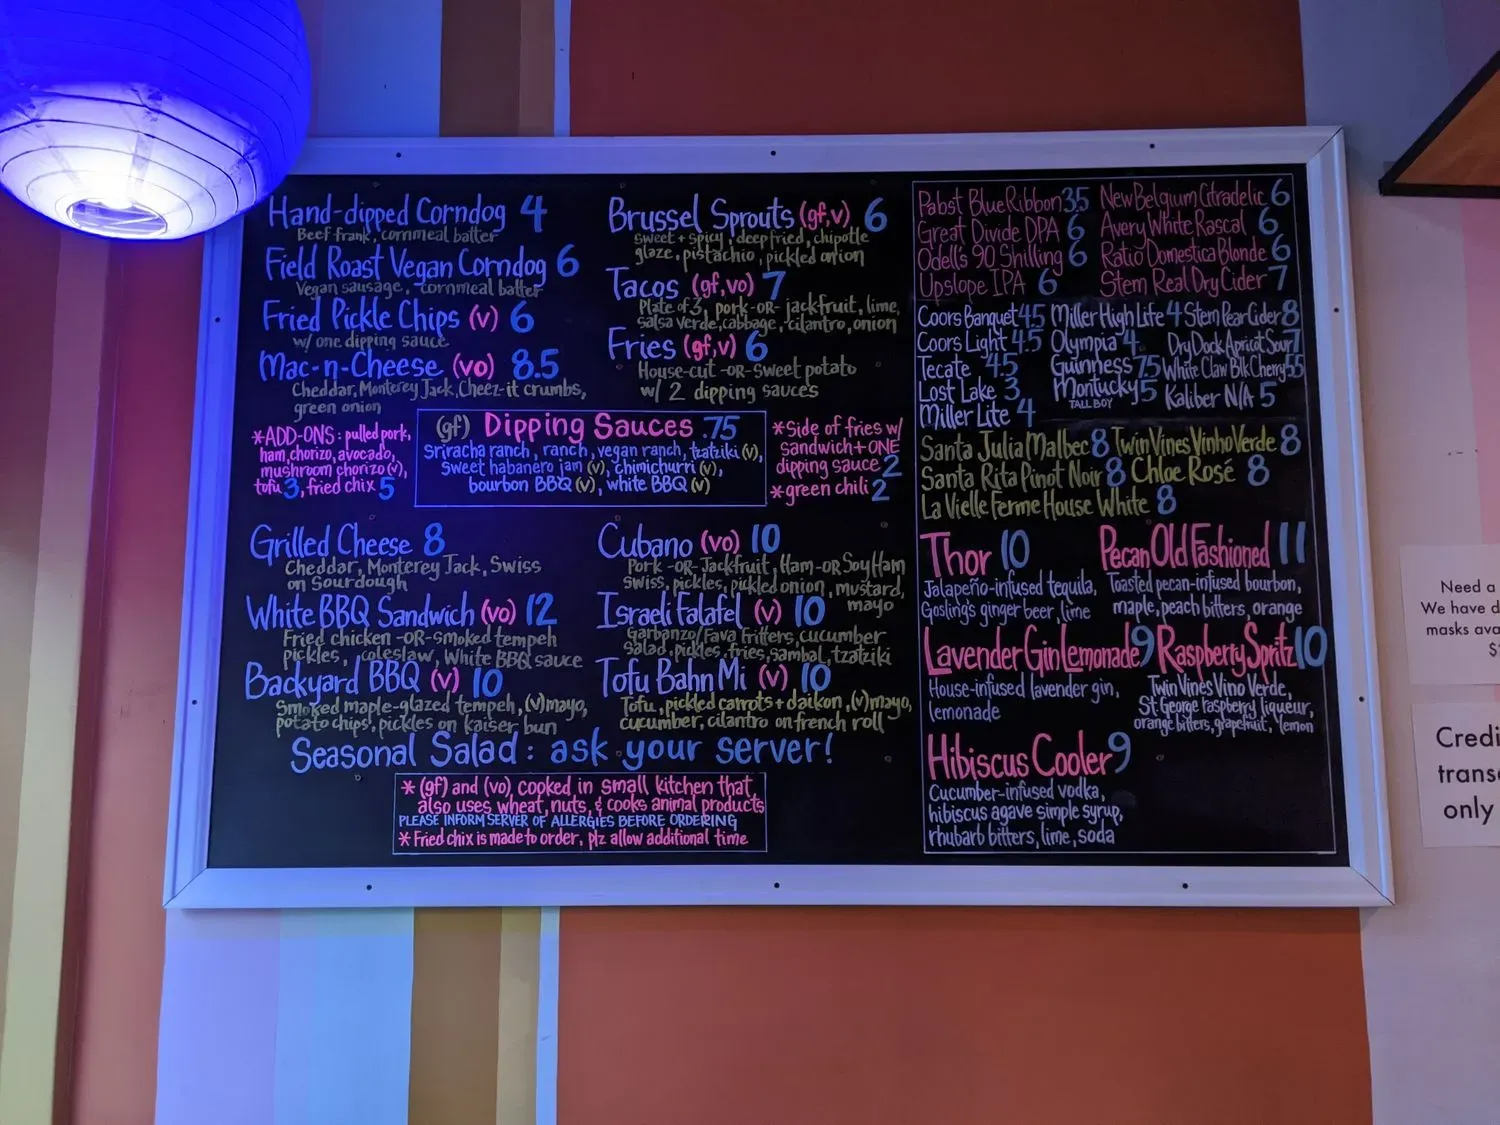 Hand-dipped Corndog 4
Beef frank, cornmeal batter
Field Roast Vegan Corndog 6
Vegan sausage, cornmeal batter
Fried Pickle Chips (v) 6
w/ one dipping sauce
Mac-n-Cheese (vo) 8.5
Cheddar, Monterey Jack, Cheez-it crumbs,
green onion
Brussel Sprouts (gf,v) 6
sweet + spicy, deep fried, chipotle
glaze, pistachio, pickled onion
Tacos (gf,vo) 7
Plate of 3, pork -OR- jackfruit, lime,
salsa verde, cabbage, cilantro, onion
Fries (gf,v) 6
House-cut -OR- Sweet potato
w/ 2 dipping sauces
*ADD-ONS: pulled pork,
ham, chorizo, avocado,
mushroom chorizo (v),
tofu 3, fried chix 5
(gf) Dipping Sauces .75
Sriracha ranch, ranch, vegan ranch, tzatziki (v),
Sweet habanero jam (v), chimichurri (v),
bourbon BBQ (v), white BBQ (v)
*Side of fries w/
sandwich + ONE
dipping sauce 2
*green chili 2
Grilled Cheese 8
Cheddar, Monterey Jack, Swiss
on Sourdough
White BBQ Sandwich (vo) 12
Fried chicken -OR- smoked tempeh
pickles, coleslaw, White BBQ sauce
Backyard BBQ (v) 10
Smoked maple-glazed tempeh, (v)mayo,
potato chips, pickles on kaiser bun
Cubano (vo) 10
Pork -OR- Jackfruit, Ham -OR- Soy Ham
Swiss, pickles, pickled onion, mustard,
mayo
Israeli Falafel (v) 10
Garbanzo/Fava fritters, cucumber
Salad, pickles, fries, Sambal, tzatziki
Tofu Bahn Mi (v) 10
Tofu, pickled carrots + daikon, (v)mayo,
cucumber, cilantro on french roll
Seasonal Salad: ask your server!
* (gf) and (vo) cooked in small kitchen that
also uses wheat, nuts, & cooks animal products
PLEASE INFORM SERVER OF ALLERGIES BEFORE ORDERING
* Fried chix is made to order, plz allow additional time
Pabst Blue Ribbon 3.5
Great Divide DPA 6
Odell's 90 Shilling 6
Upslope IPA 6
New Belgium Citradelic 6
Avery White Rascal 6
Ratio Domestica Blonde 6
Stem Real Dry Cider 7
Coors Banquet 4.5
Coors Light 4.5
Tecate 4.5
Lost Lake 3
Miller Lite 4
Miller High Life 4
Olympia 4
Guinness 7.5
Montucky 5
TALL BOY
Stem Pear Cider 8
Dry Dock Apricot Sour 7
White Claw Blk Cherry 5.5
Kaliber N/A 5
Santa Julia Malbec 8
Santa Rita Pinot Noir 8
La Vielle Ferme House White 8
Twin Vines Vinho Verde 8
Chloe Rosé 8
Thor 10
Jalapeño-infused tequila,
Gosling's ginger beer, lime
Pecan Old Fashioned 11
Toasted pecan-infused bourbon,
maple, peach bitters, orange
Lavender Gin Lemonade 9
House-infused lavender gin,
lemonade
Raspberry Spritz 10
Twin Vines Vino Verde,
St. George raspberry liqueur,
orange bitters, grapefruit, lemon
Hibiscus Cooler 9
Cucumber-infused vodka,
hibiscus agave simple syrup,
rhubarb bitters, lime, soda
Need a
We have d
masks ava
Credi
trans
only